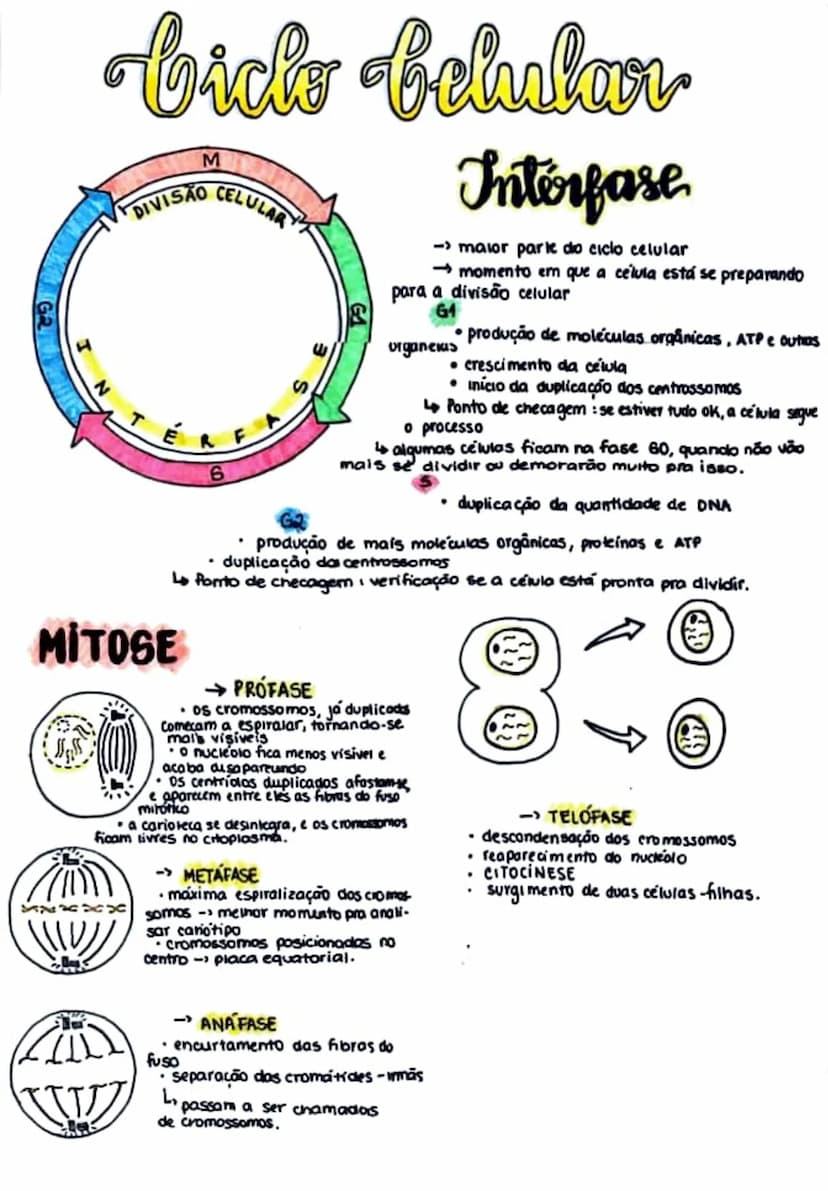 Ciclo Celular
M
DIVISÃO CELULAR
G1
G2
INTÉRFASE
S
Intérfase
-> maior parte do ciclo celular
-> momento em que a célula está se preparando
para a divisão celular
G1
• produção de moléculas orgânicas, ATP e outras
organelas
• crescimento da célula
• início da duplicação dos centrossomos
↳ Ponto de checagem : se estiver tudo ok, a célula segue
o processo
↳ algumas células ficam na fase G0, quando não vão
mais se dividir ou demorarão muito pra isso.
S
• duplicação da quantidade de DNA
G2
• produção de mais moléculas orgânicas, proteínas e ATP
• duplicação dos centrossomos
↳ Ponto de checagem : verificação se a célula está pronta pra dividir.
MITOSE
-> PRÓFASE
• os cromossomos, já duplicados
começam a espiralar, tornando-se
mais visíveis
• o nucléolo fica menos visível e
acaba desaparecendo
• Os centríolos duplicados afastam-se,
e aparecem entre eles as fibras do fuso
mitótico
• a carioteca se desintegra, e os cromossomos
ficam livres no citoplasma.
-> METÁFASE
• máxima espiralização dos cromos-
somos -> melhor momento pra anali-
sar cariótipo
• cromossomos posicionados no
centro -> placa equatorial.
-> ANÁFASE
• encurtamento das fibras do
fuso
• separação das cromátides-irmãs
↳ passam a ser chamadas
de cromossomos.
-> TELÓFASE
• descondensação dos cromossomos
• reaparecimento do nucléolo
• CITOCINESE
• surgimento de duas células-filhas.